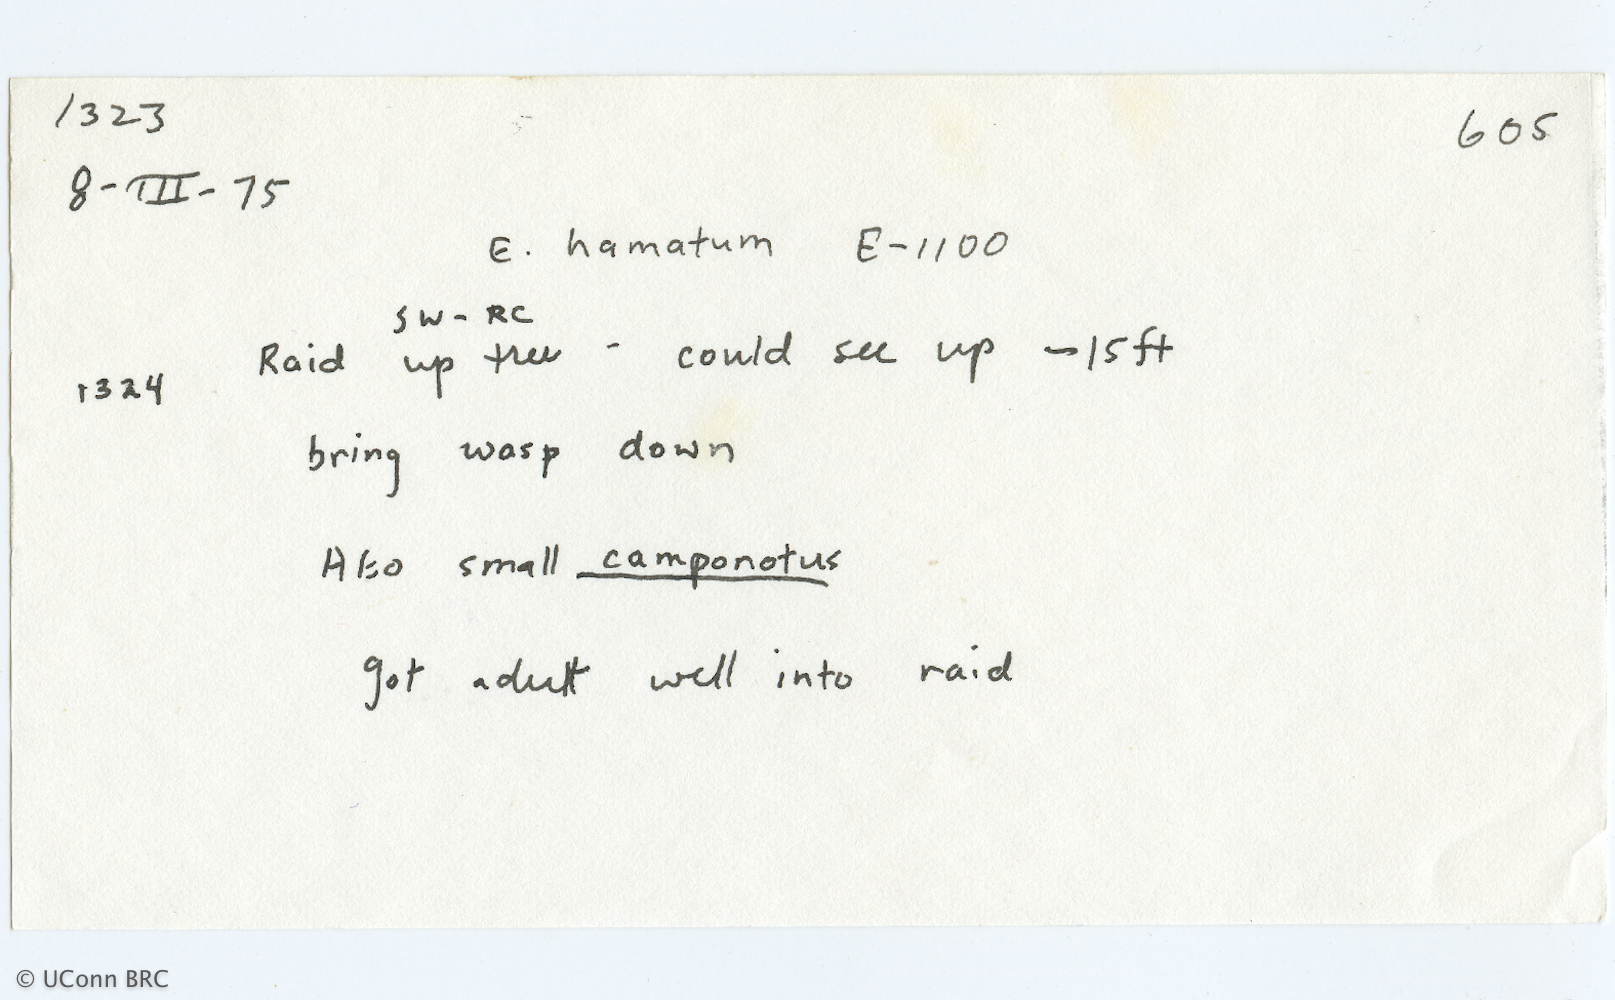 1323
605
8-III-75
E. hamatum E-1100
SW-RC
Raid up tree - could see up ~15ft
1324
bring wasp down
Also small camponotus
got adult well into raid
© UConn BRC